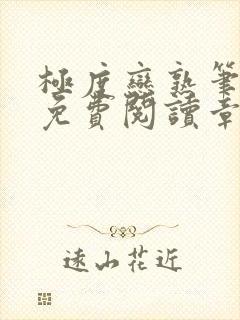 極度戀熟筆
免費閱讀章
遠山花近